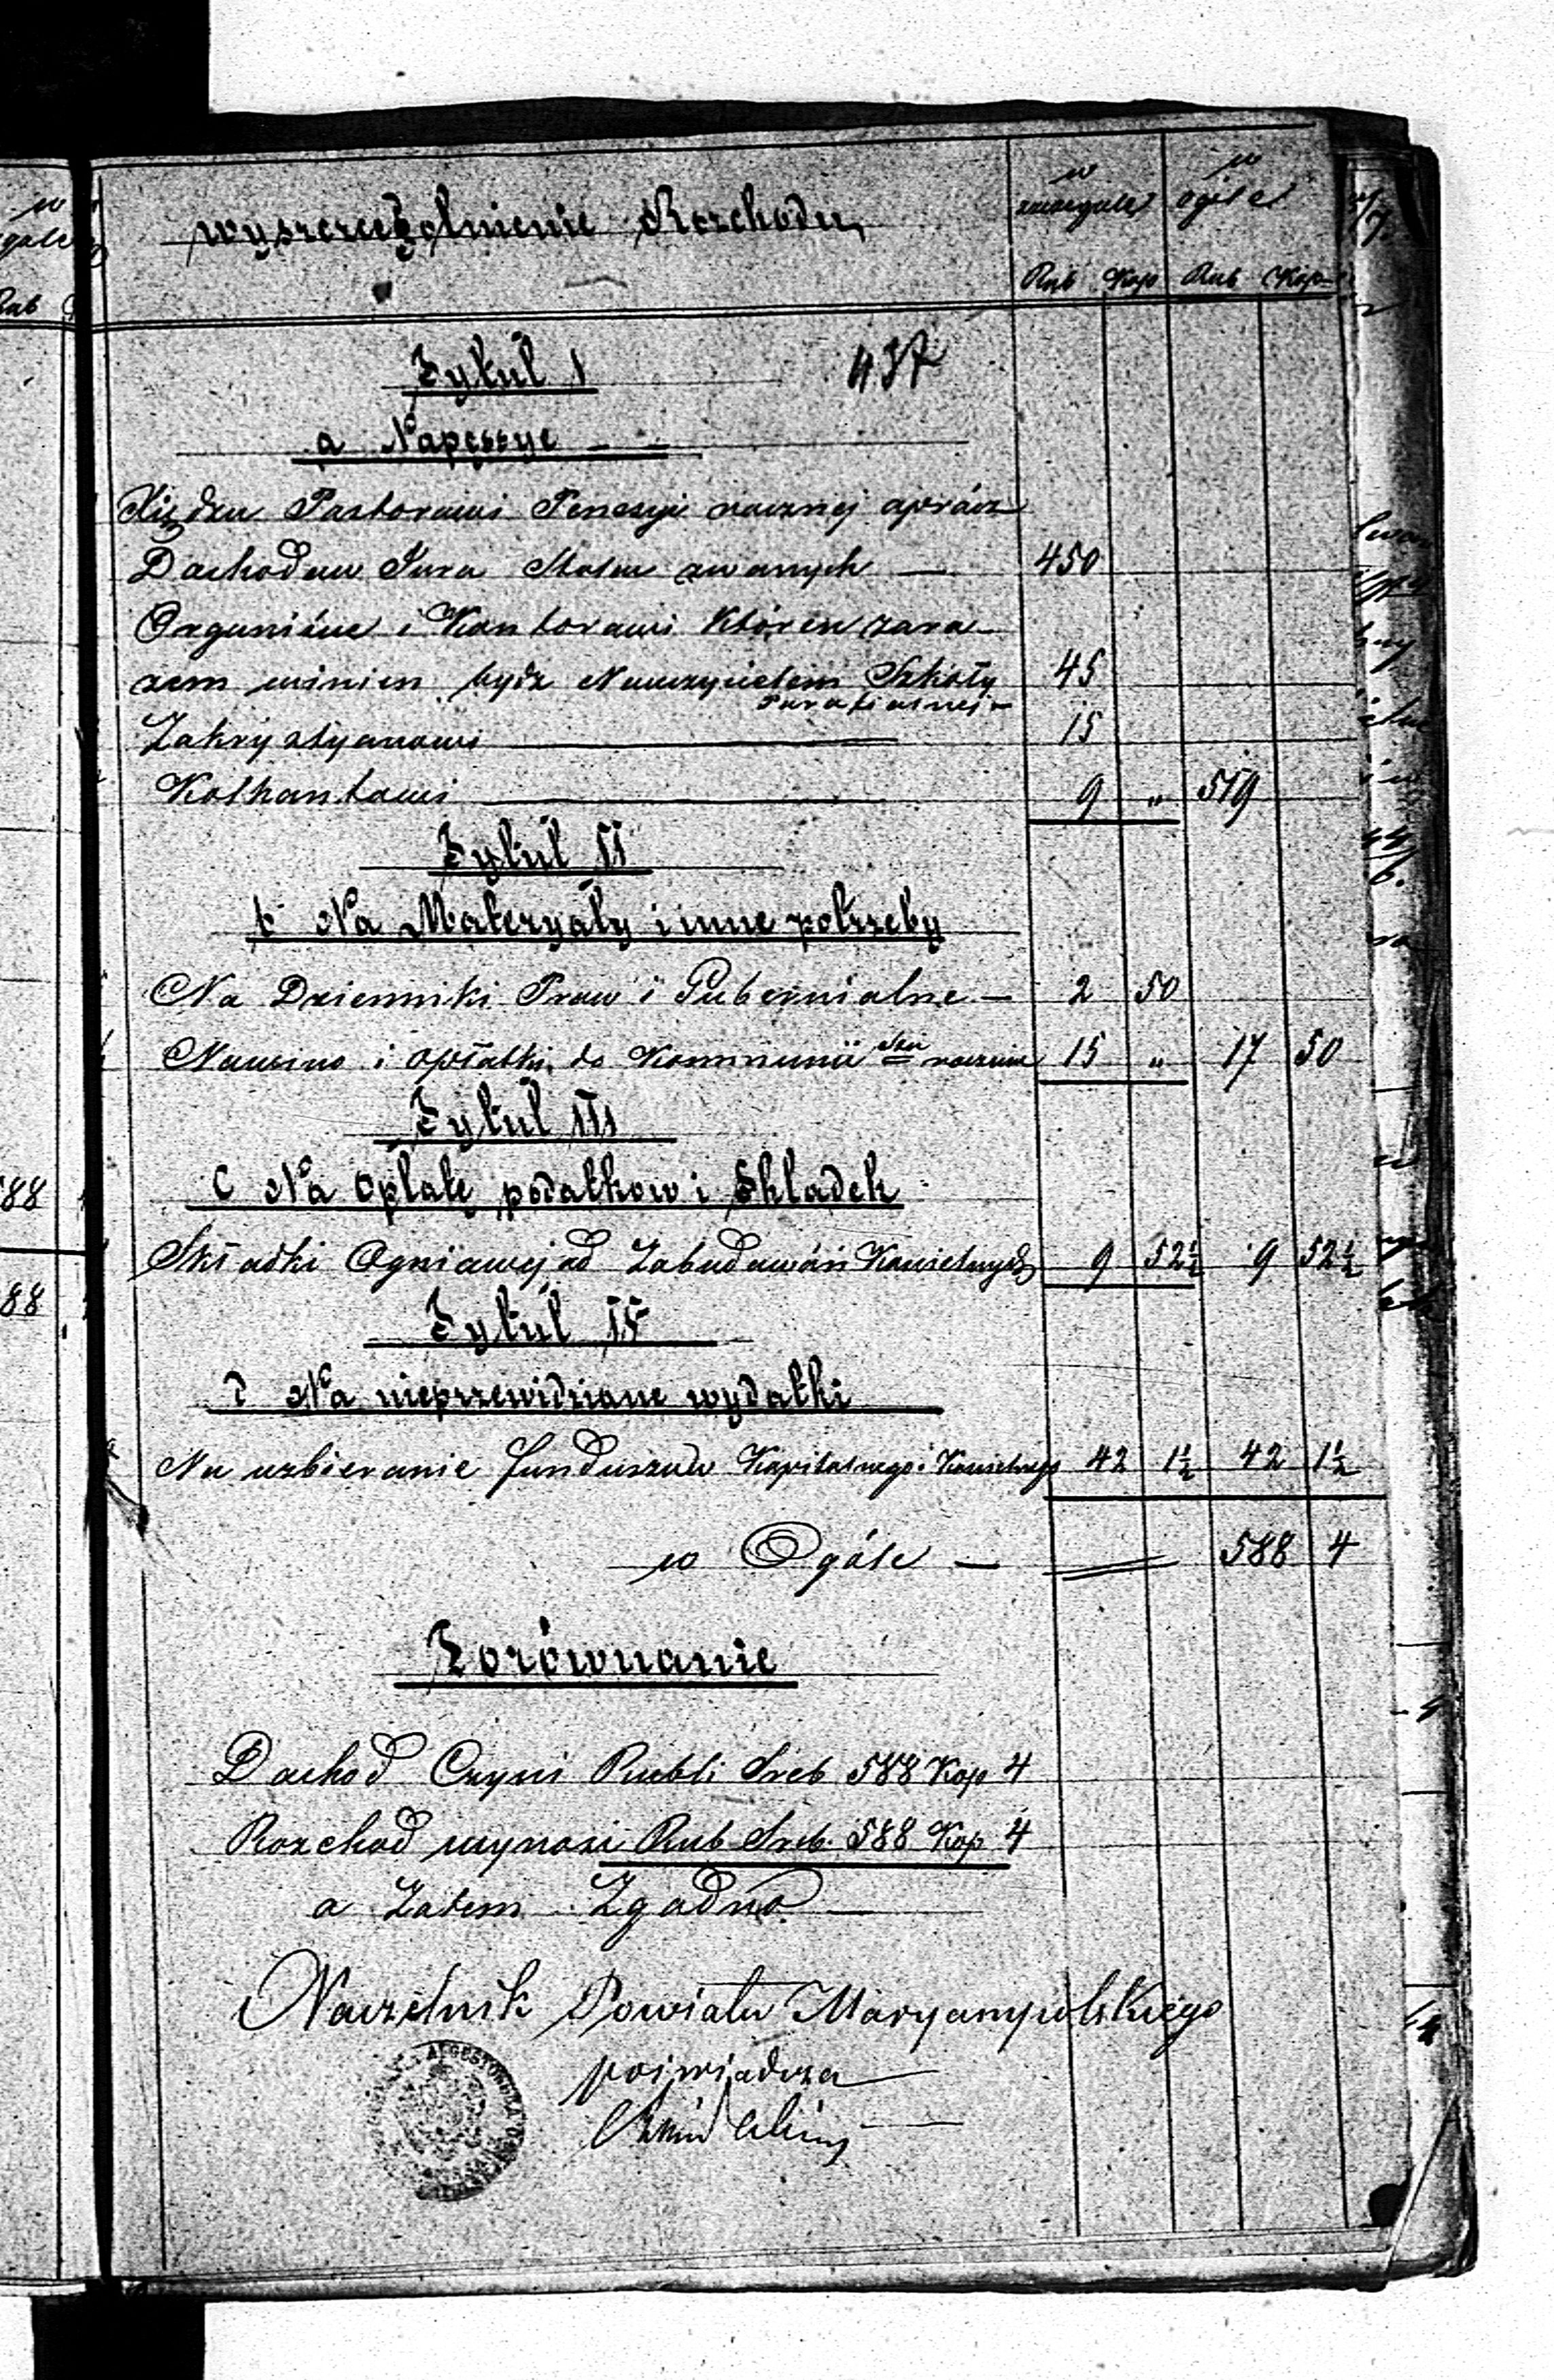 wyszczegolnienie Rozchodu
w szczegule w ogóle
Rub Kop Rub Kop
Tytuł I 437
a Na pęssye
Xiędzu Pastorowi Pensyi rocznej oprócz
Dochodów Jura Stolae zwanych — 450
Organiście i Kantorowi któren zara
zem winien bydz Nauczycielem Szkoły 45
Parafialnej —
Zakrystyanowi — 15
Kalkantowi — 9 " 519
Tytuł II
b Na Materyały i inne potrzeby
Na Dzienniki Praw i Gubernialne — 2 50
Na wino i opłatki do Kommunii Stej rocznie 15 " 17 50
Tytuł III
C Na Opłatę podatkow i Składek
Składki Ogniowej od Zabudowań Kościelnych 9 52½ 9 52½
Tytuł IV
d Na nieprzewidziane wydatki
Na uzbieranie funduszów Kapitalnego Kościelnego 42 1½ 42 1½
w Ogóle — 588 4
Porównanie
Dochod Czyni Rubli Sreb 588 Kop 4
Rozchod wynosi Rub Sreb. 588 Kop 4
a Zatem Zgodno —
Naczelnik Powiatu Maryampolskiego
poświadcza